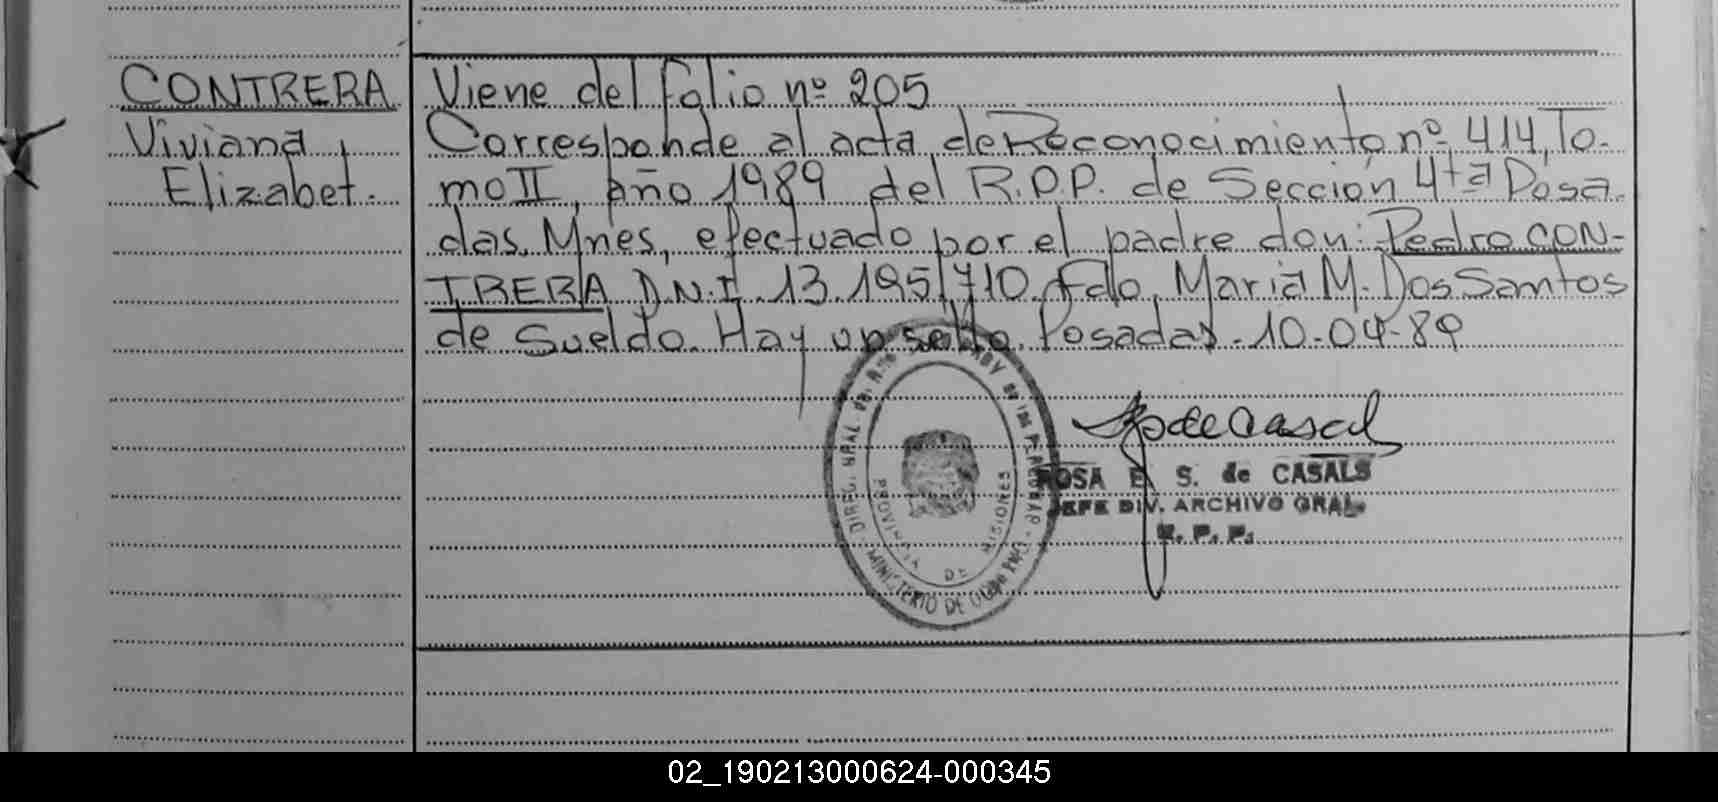 CONTRERA
Viviana
Elizabet.
Viene del folio nº 205
Corresponde al acta de Reconocimiento nº 414, To-
mo II, año 1989 del R.P.P. de Sección 4ta Posa-
das, Mnes, efectuado por el padre don: Pedro CON-
TRERA D.N.I. 13.195.710. Fdo, Maria M. Dos Santos
de Sueldo. Hay un sello. Posadas. 10-04-89
MINISTERIO DE
PROVINCIA DE MISIONES
ROSA E. S. de CASALS
JEFE DIV. ARCHIVO GRAL.
R. P. P.
02_190213000624-000345